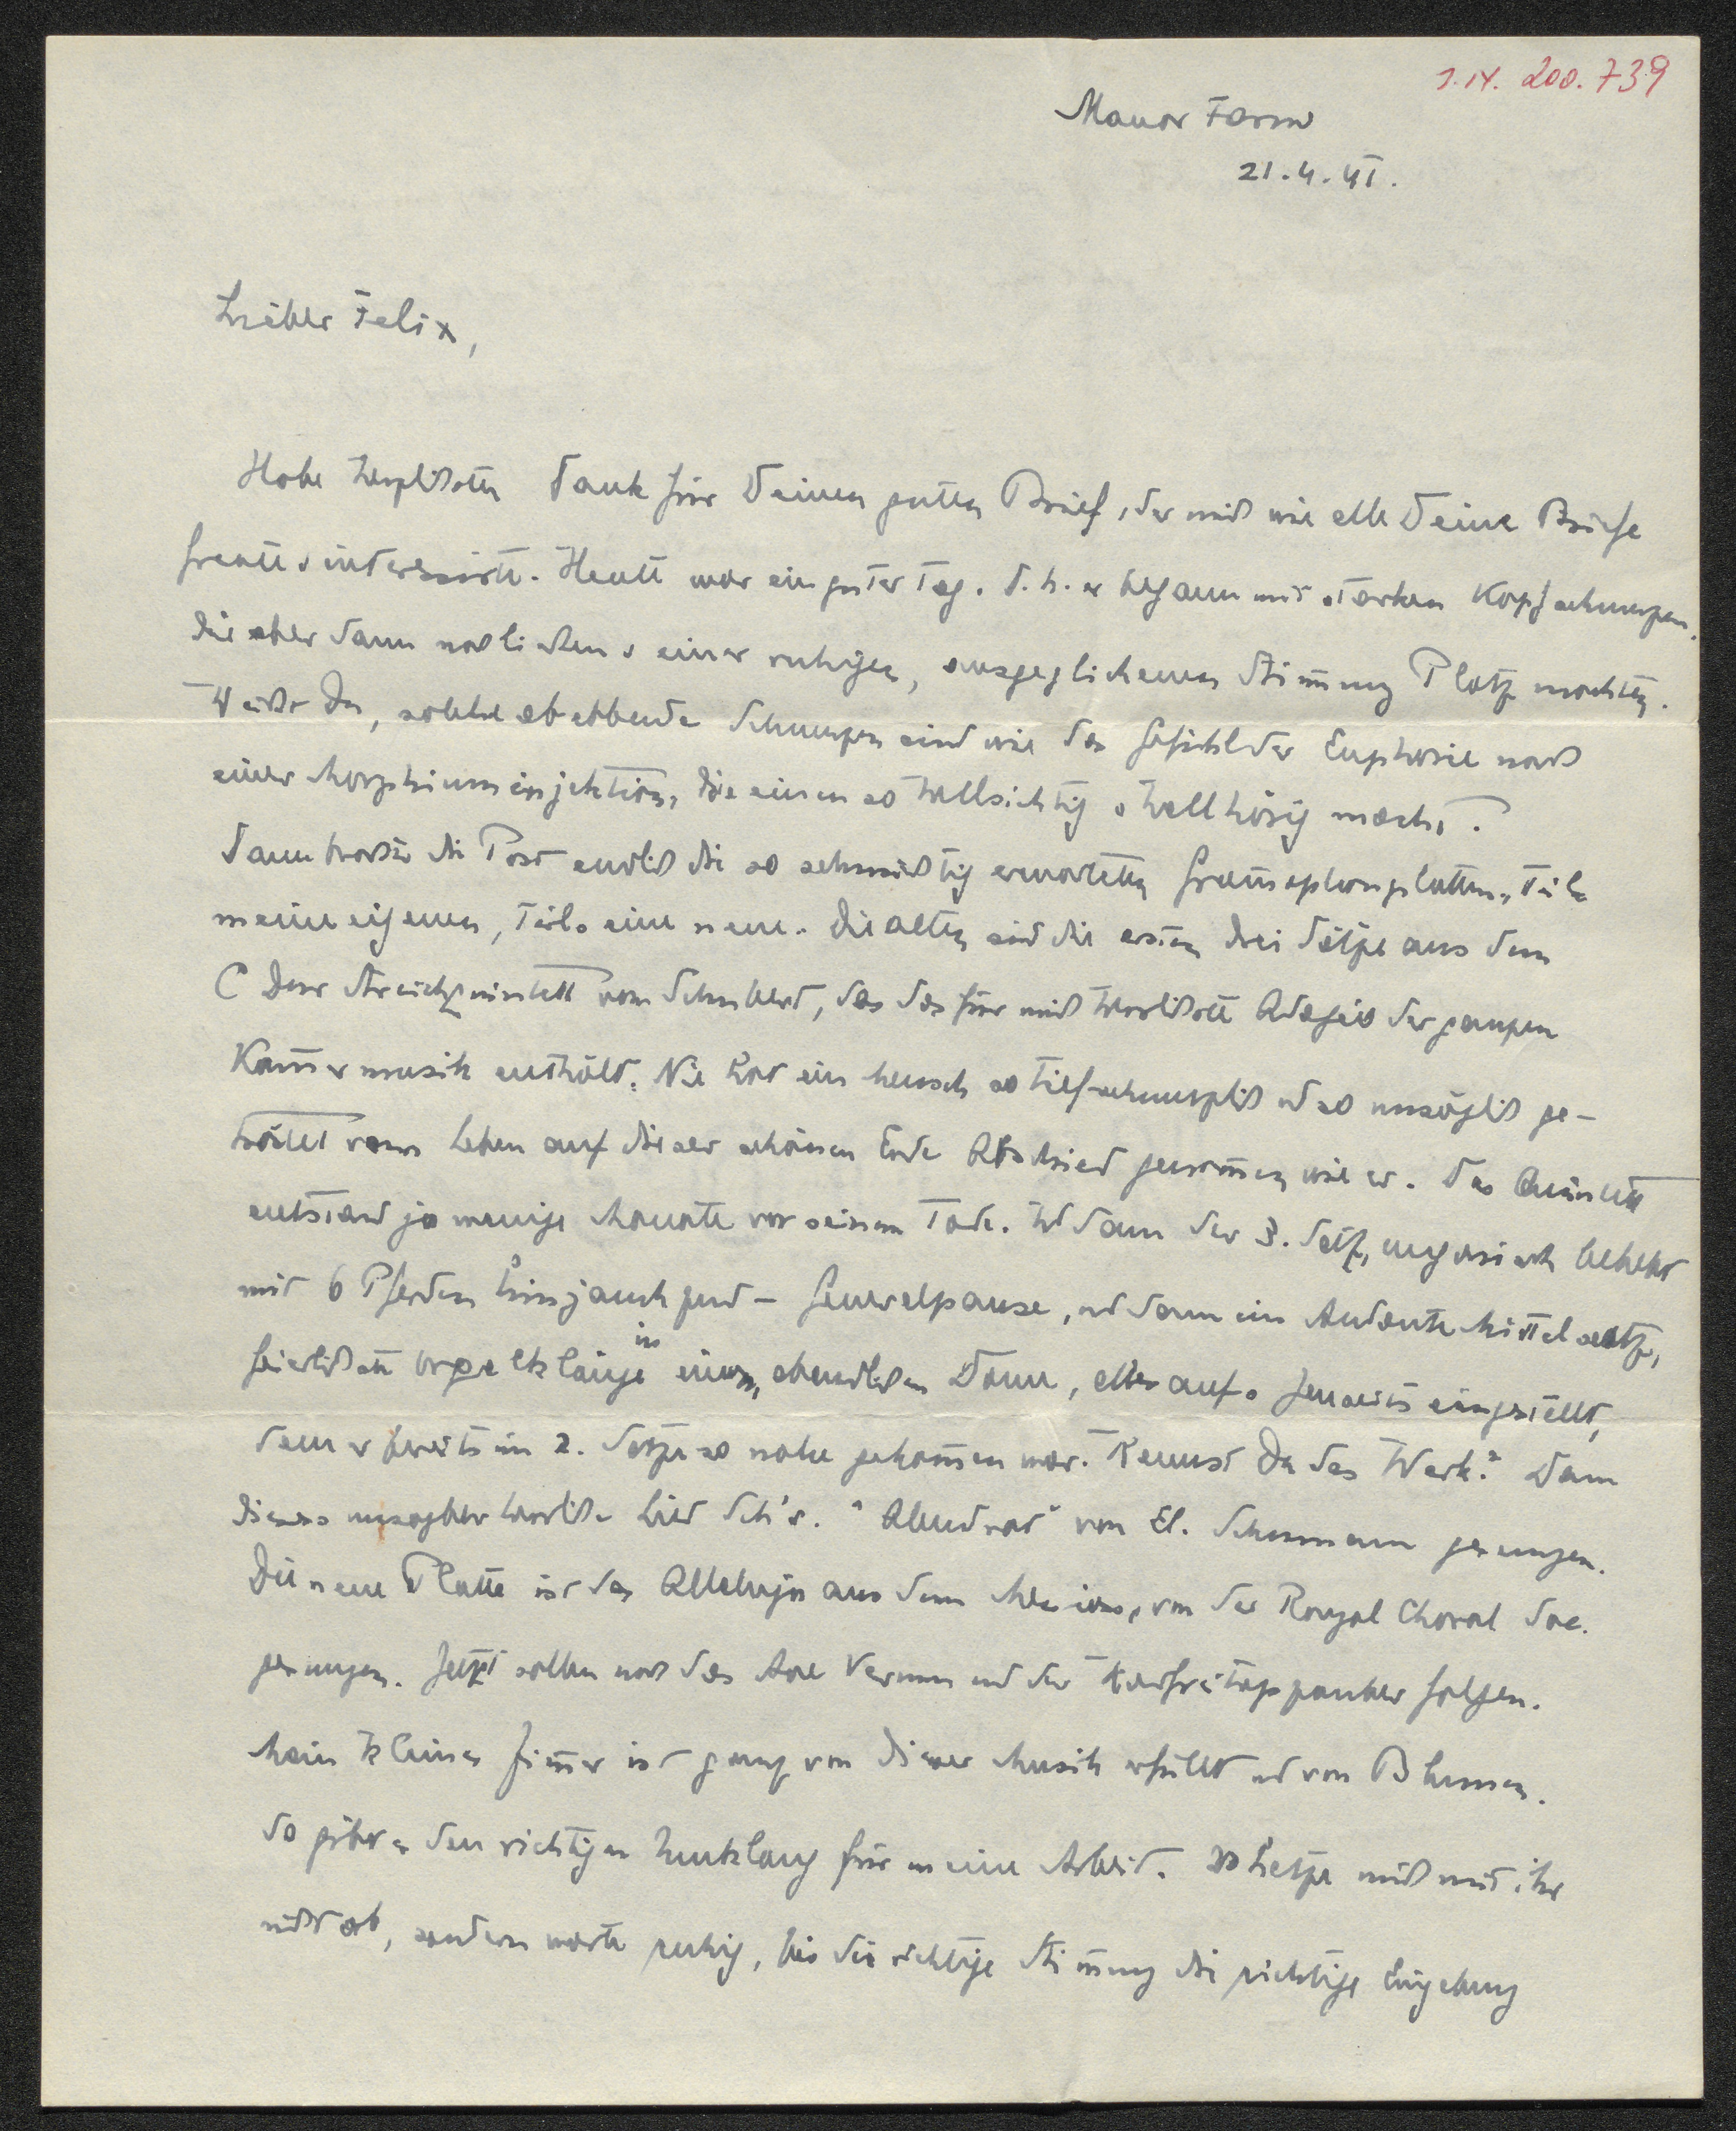 J.N. 200.739
Manor Farm
21.4.41.
Lieber Felix,
Habe herzlichsten Dank für Deinen guten Brief, der mich wie alle Deine Briefe
freute u. interessirte. Heute war ein guter Tag. D.h. er begann mit starken Kopfschmerzen,
die aber dann nachliessen u. einer ruhigen, ausgeglichenen Stimmung Platz machten.
Weisst Du, solche abebbende Schmerzen sind wie das Gefühl der Euphorie nach
einer Morphiuminjektion, die einen so hellsichtig u. hellhörig macht.
Dann brachte die Post endlich die so sehnsüchtig erwarteten Gramophonplatten, teils
meine eigenen, teils eine neue. Die alten sind die ersten drei Sätze aus dem
C Dur Streichquintett von Schubert, das das für mich herrlichste Adagio der ganzen
Kam̅ermusik enthält. Nie hat ein Mensch so tief schmerzlich und so unsäglich ge-
tröstet vom Leben auf dieser schönen Erde Abschied genom̅en wie er. Das Quintett
entstand ja wenige Monate vor seinem Tode. Und dann der 3. Satz, ungarisch belebt
mit 6 Pferden hinjauchzend – Generalpause, und dann ein Andante Mittelsatz,
feierlichste Orgelklänge in einem abendlichen Dom, alles aufs Jenseits eingestellt,
dem er bereits im 2. Satze so nahe gekom̅en war. Kennst Du das Werk? Dann
dieses unsagbar herrliche Lied Sch's. "Abendrot" von El. Schumann gesungen.
Die neue Platte ist das Alleluja aus dem Messias, von der Royal Choral Soc.
gesungen. Jetzt sollen noch das Ave Verum und der Karfreitagszauber folgen.
Mein kleines Zim̅er ist ganz von dieser Musik erfüllt und von Blumen.
So gibt es den richtigen Einklang für meine Arbeit. Ich hetze mich mit ihr
nicht ab, sondern warte ruhig, bis die richtige Stim̅ung die richtige Eingebung